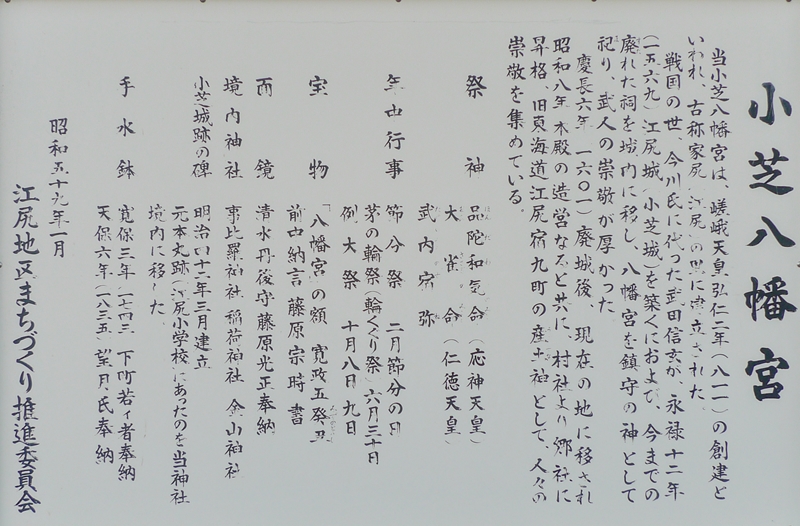 小芝八幡宮
当小芝八幡宮は、嵯峨天皇弘仁二年(八一一)の創建と
いわれ、古称家尻(江尻)の里に建立された。
戦国の世、今川氏に代った武田信玄が、永禄十二年
(一五六九)江尻城(小芝城)を築くにおよび、今までの
廃れた祠を城内に移し、八幡宮を鎮守の神として
祀り、武人の崇敬が厚かった
慶長六年(一六〇一)廃城後、現在の地に移され
昭和八年本殿の造営なると共に、村社より郷社に
昇格、旧東海道江尻宿九町の産土神として、人々の
崇敬を集めている。
祭神 品陀和気命(応神天皇)
大雀命(仁徳天皇)
武内宿弥
年中行事 節分祭 二月節分の日
茅の輪祭(輪くぐり祭)六月三十日
例大祭 十月八日九日
宝物 「八幡宮」の額 寛政五癸丑
前中納言藤原宗時書
面鏡 清水丹後守藤原光正奉納
境内神社 事比羅神社 稲荷神社 金山神社
小芝城跡の碑 明治四十二年三月建立
元本丸跡(江尻小学校)にあったのを当神社
境内に移した
手水鉢 寛保三年(一七四三)下町若イ者奉納
天保六年(一八三五)望月氏奉納
昭和五十九年一月
江尻地区まちづくり推進委員会